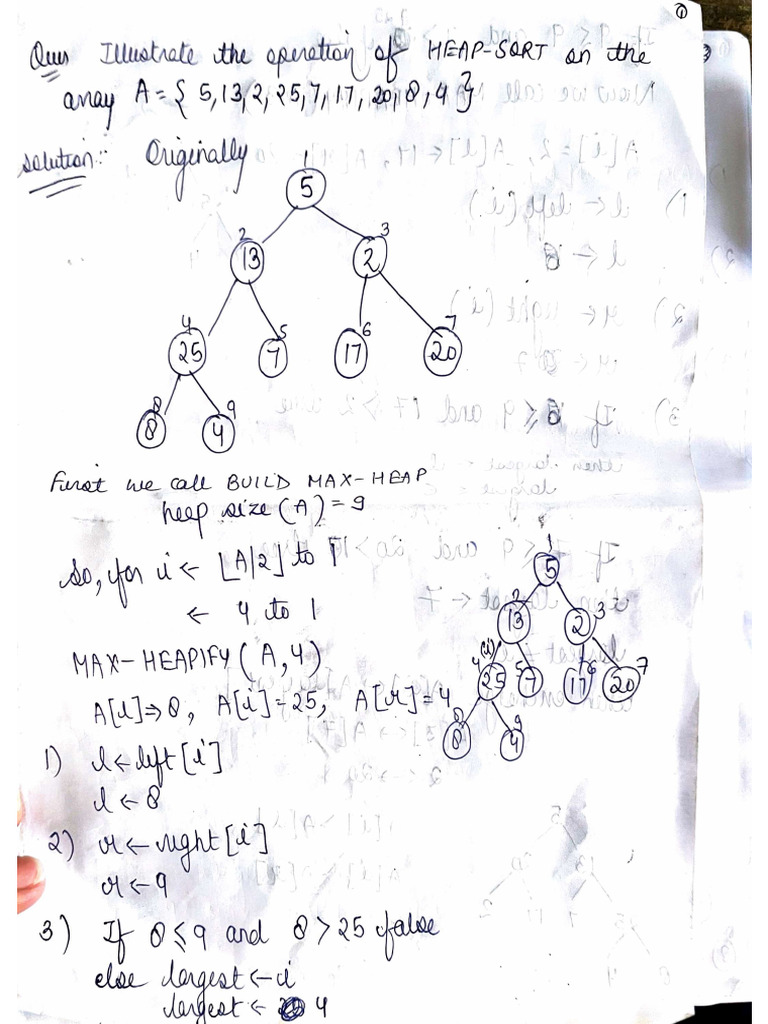 ①
Ques Illustrate the operation of HEAP-SORT on the
array A = { 5, 13, 2, 25, 7, 17, 20, 8, 4 }
Solution:- Originally
1
5
2 3
13 2
4 5 6 7
25 7 17 20
8 9
8 4
First we call BUILD MAX-HEAP
heep size (A) = 9
So, for i ← ⌊A/2⌋ to 1
← 4 to 1
MAX-HEAPIFY (A, 4)
A[l] ⇒ 8, A[i] = 25, A[r] = 4
1
5
2 3
13 2
4 (i) 5 6 7
25 7 17 20
8 9
8 4
1) l ← left [i]
l ← 8
2) r ← right [i]
r ← 9
3) If 8 ≤ 9 and 8 > 25 false
else largest ← i
largest ← 4